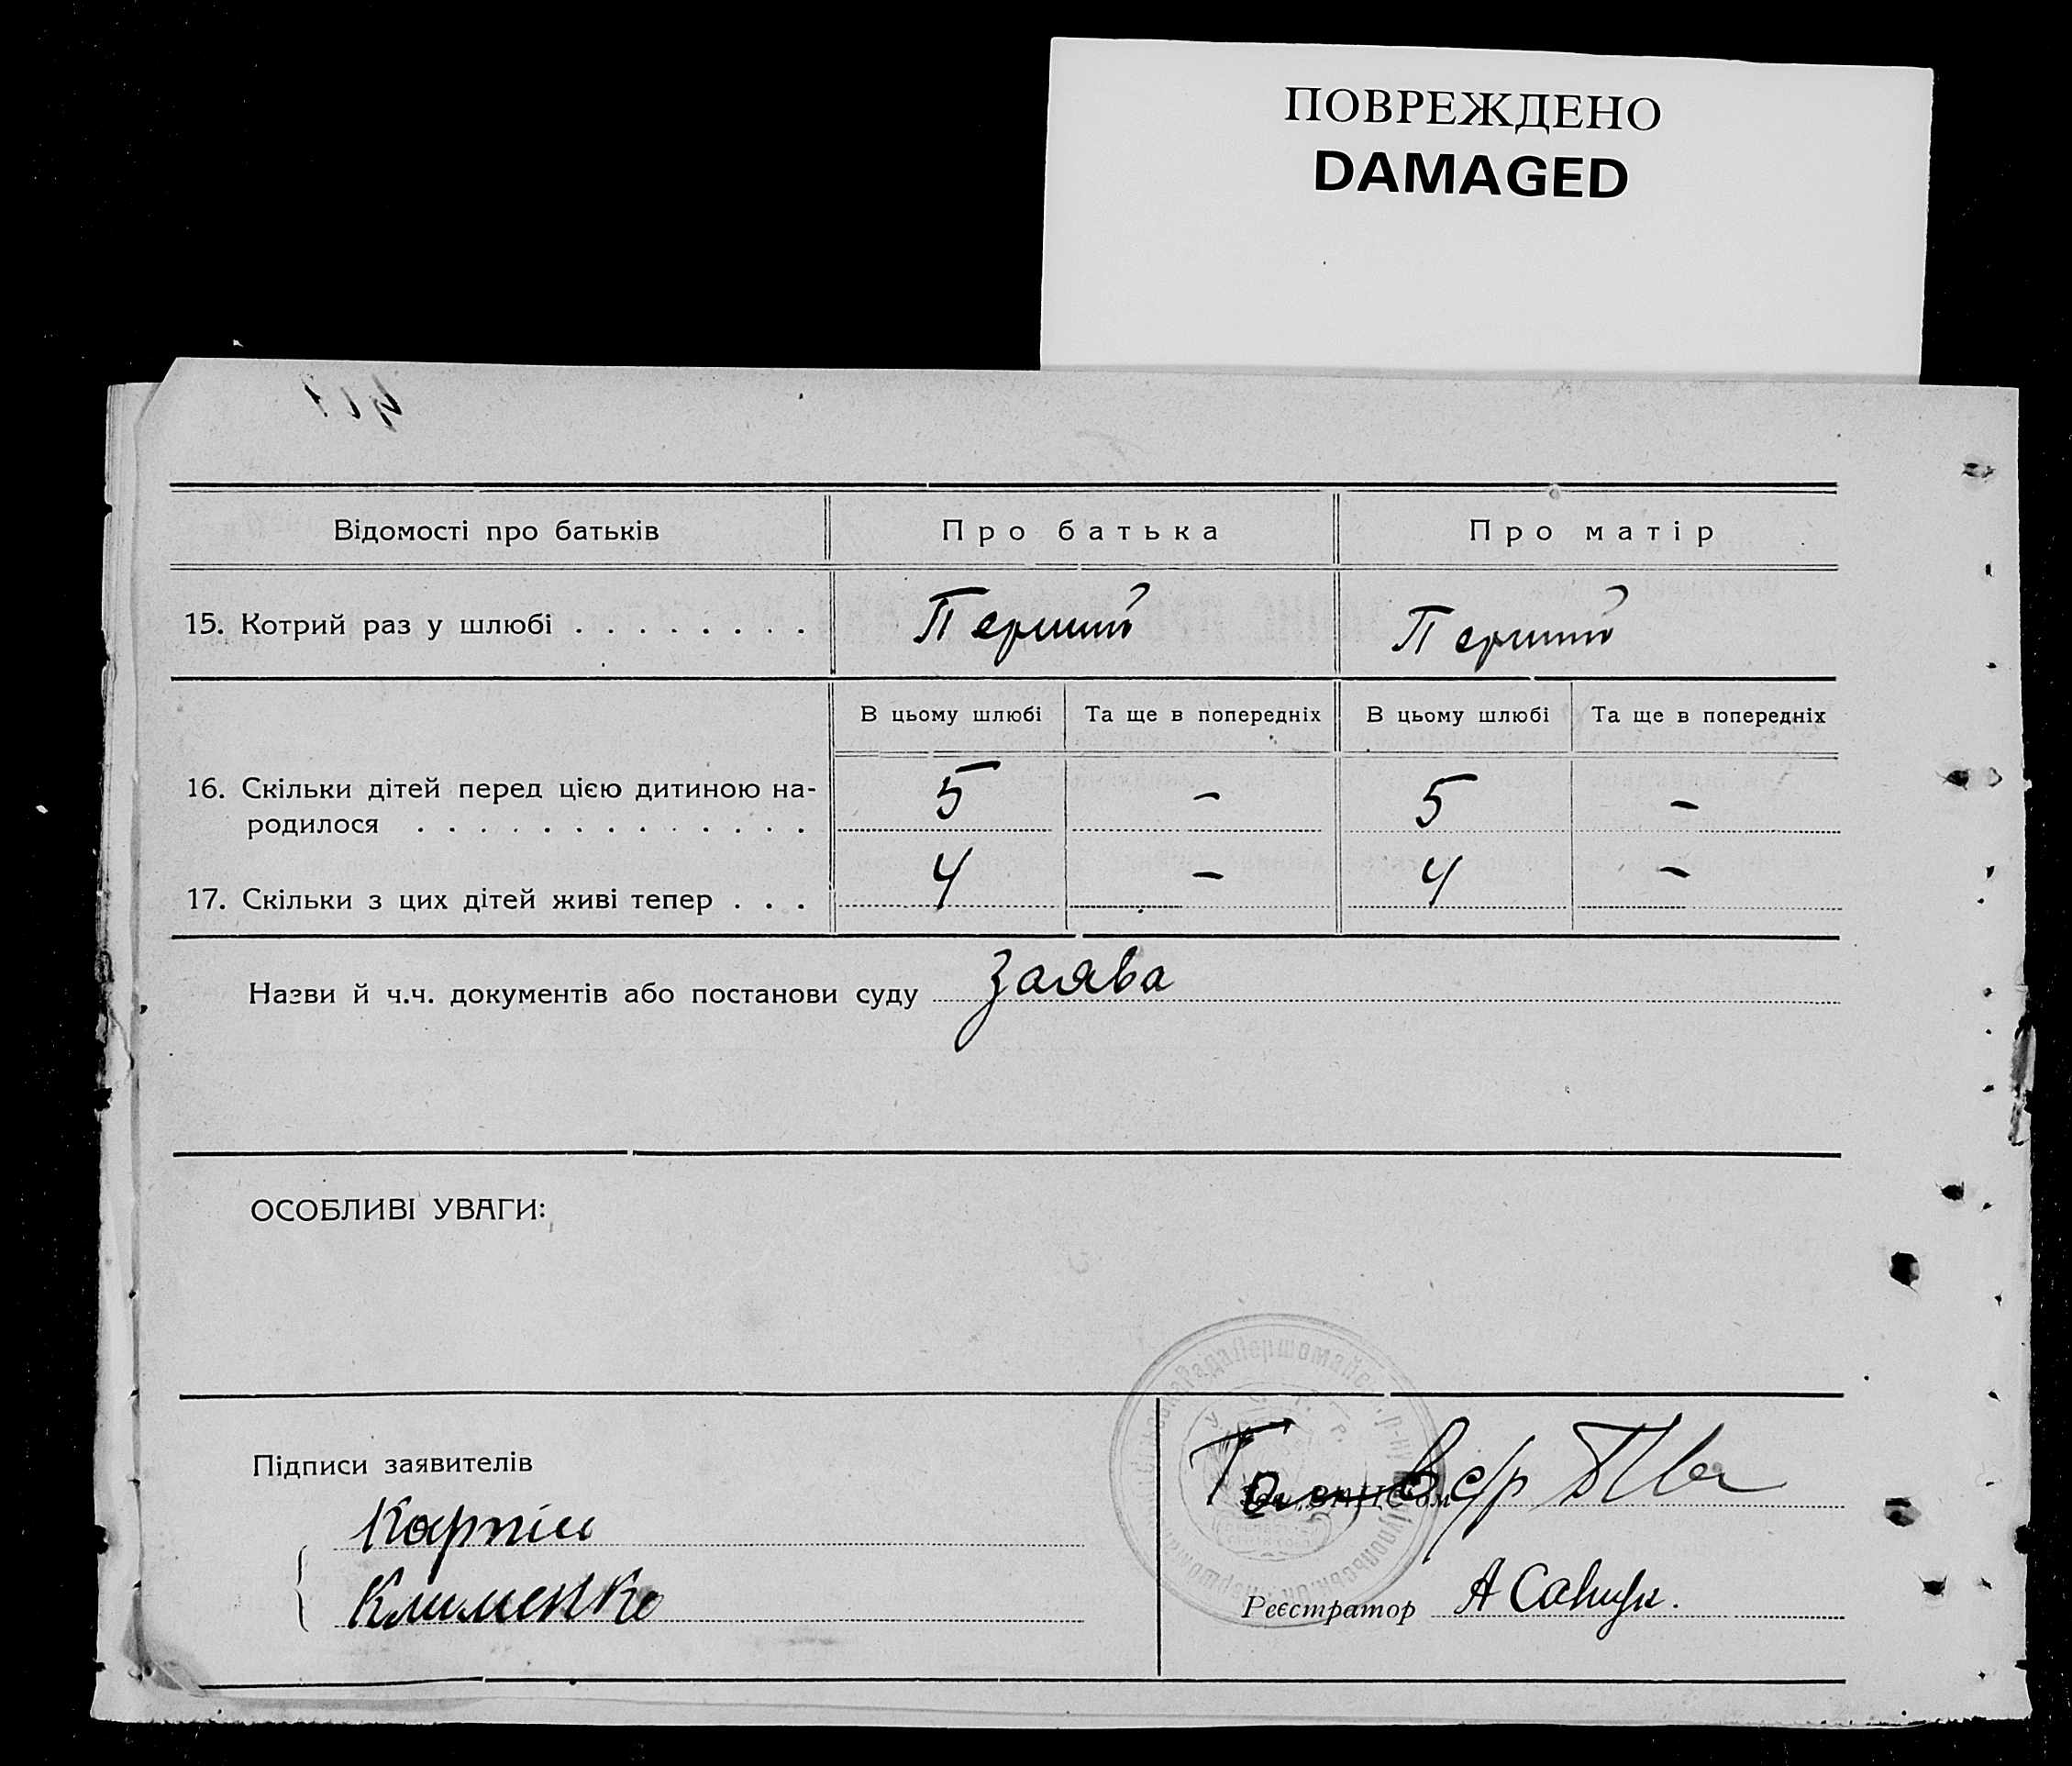 ПОВРЕЖДЕНО
DAMAGED
Відомості про батьків
Про батька
Про матір
15. Котрий раз у шлюбі . . . . . . . .
Перший
Перший
В цьому шлюбі
Та ще в попередніх
В цьому шлюбі
Та ще в попередніх
16. Скільки дітей перед цією дитиною на-
родилося . . . . . . . . . . . . . .
5
-
5
-
17. Скільки з цих дітей живі тепер . . .
4
-
4
-
Назви й ч.ч. документів або постанови суду
Заява
ОСОБЛИВІ УВАГИ:
Рада Першомайськ
Підписи заявителів
Карпій
Клименко
с/р
Реєстратор
А